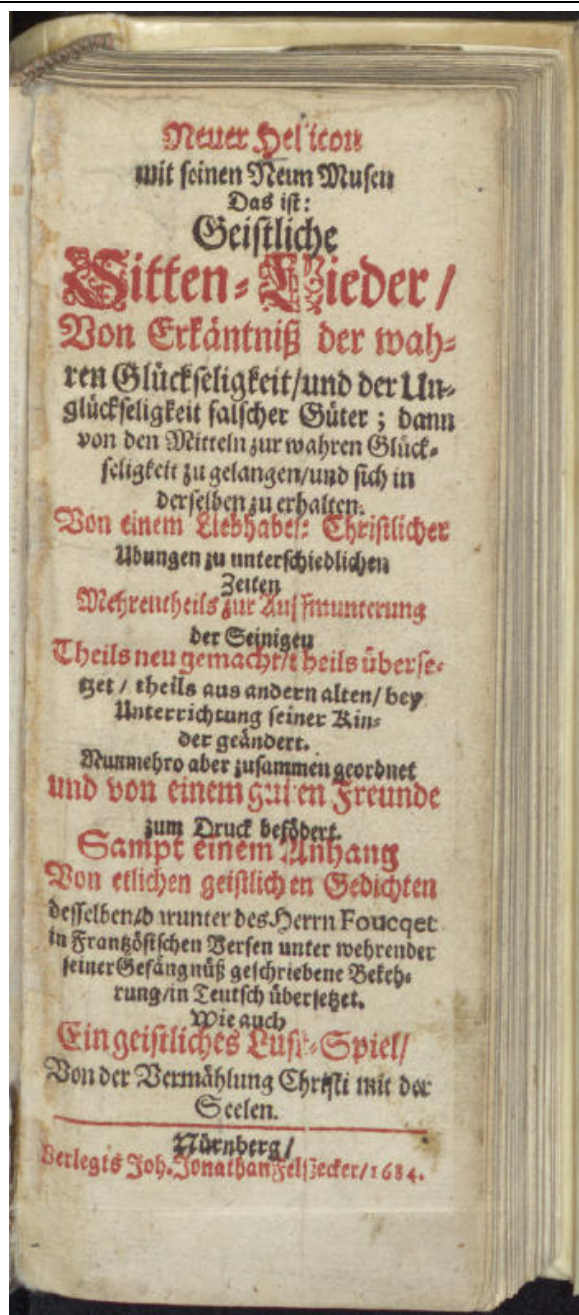 Neuer Helicon
mit seinen Neun Musen
Das ist:
Geistliche
Sitten-Lieder /
Von Erkäntniß der wah-
ren Glückseligkeit/und der Un-
glückseligkeit falscher Güter ; dann
von den Mitteln zur wahren Glück-
seligkeit zu gelangen/und sich in
derselben zu erhalten.
Von einem Liebhaber: Christlicher
Ubungen zu unterschiedlichen
Zeiten
Mehrentheils zur Auffmunterung
der Seinigen
Theils neu gemacht/theils überse-
tzet / theils aus andern alten/ bey
Unterrichtung seiner Kin-
der geändert.
Nunmehro aber zusammen geordnet
und von einem guten Freunde
zum Druck befödert.
Sampt einem Anhang
Von etlichen geistlichen Gedichten
desselben/darunter des Herrn Foucqet
in Frantzösischen Versen unter wehrender
seiner Gefängnüß geschriebene Bekeh-
rung/in Teutsch übersetzet.
Wie auch
Ein geistliches Lust-Spiel/
Von der Vermählung Christi mit der
Seelen.
Nürnberg/
Verlegts Joh. Jonathan Felßecker/1684.